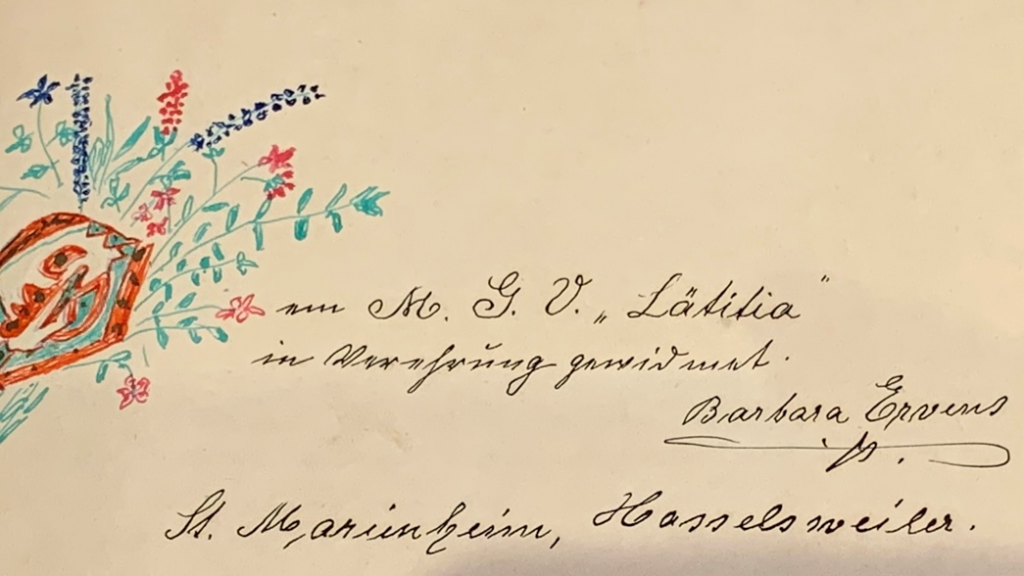 em M. G. V. „Lätitia"
in Verehrung gewidmet.
Barbara Ervens
St. Marienheim, Hasselsweiler.